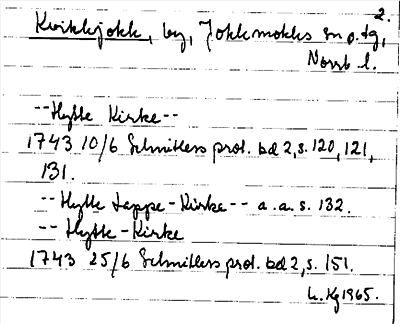 2.
Kvikkjokk, by, Jokkmokks sn o. tg,
Norrb l.
--Hytte Kirke--
1743 10/6 Schnitlers prot. bd 2, s. 120, 121,
131.
--Hytte Lappe-Kirke-- a.a. s. 132.
-- Hytte-Kirke
1743 25/6 Schnitlers prot. bd 2, s. 151.
Kg 1965.